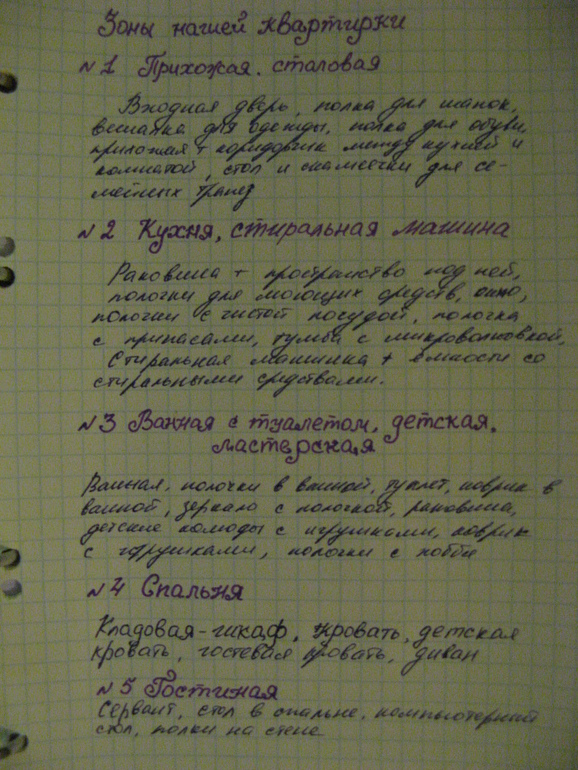 Зоны нашей квартирки
№1 Прихожая. сталовая
Входная дверь, полка для шапок,
вешалка для одежды, полка для обуви,
прихожая + коридорчик между кухней и
комнатой, стол и скамеечки для се-
мейных трапез
№2 Кухня, стиральная машина
Раковина + пространство под ней,
полочки для моющих средств, окно,
полочки с чистой посудой, полочка
с припасами, тумба с микроволновкой.
Стиральная машинка + ёмкости со
стиральными средствами.
№3 Ванная с туалетом, детская.
мастерская
Ванная, полочки в ванной, туалет, коврик в
ванной, зеркало с полочкой, раковина,
детские комоды с игрушками, коврик
с игрушками, полочки с хобби
№4 Спальня
Кладовая-шкаф, кровать, детская
кровать, гостевая кровать, диван
№5 Гостиная
Сервант, стол в спальне, компьютерный
стол, полки на стене